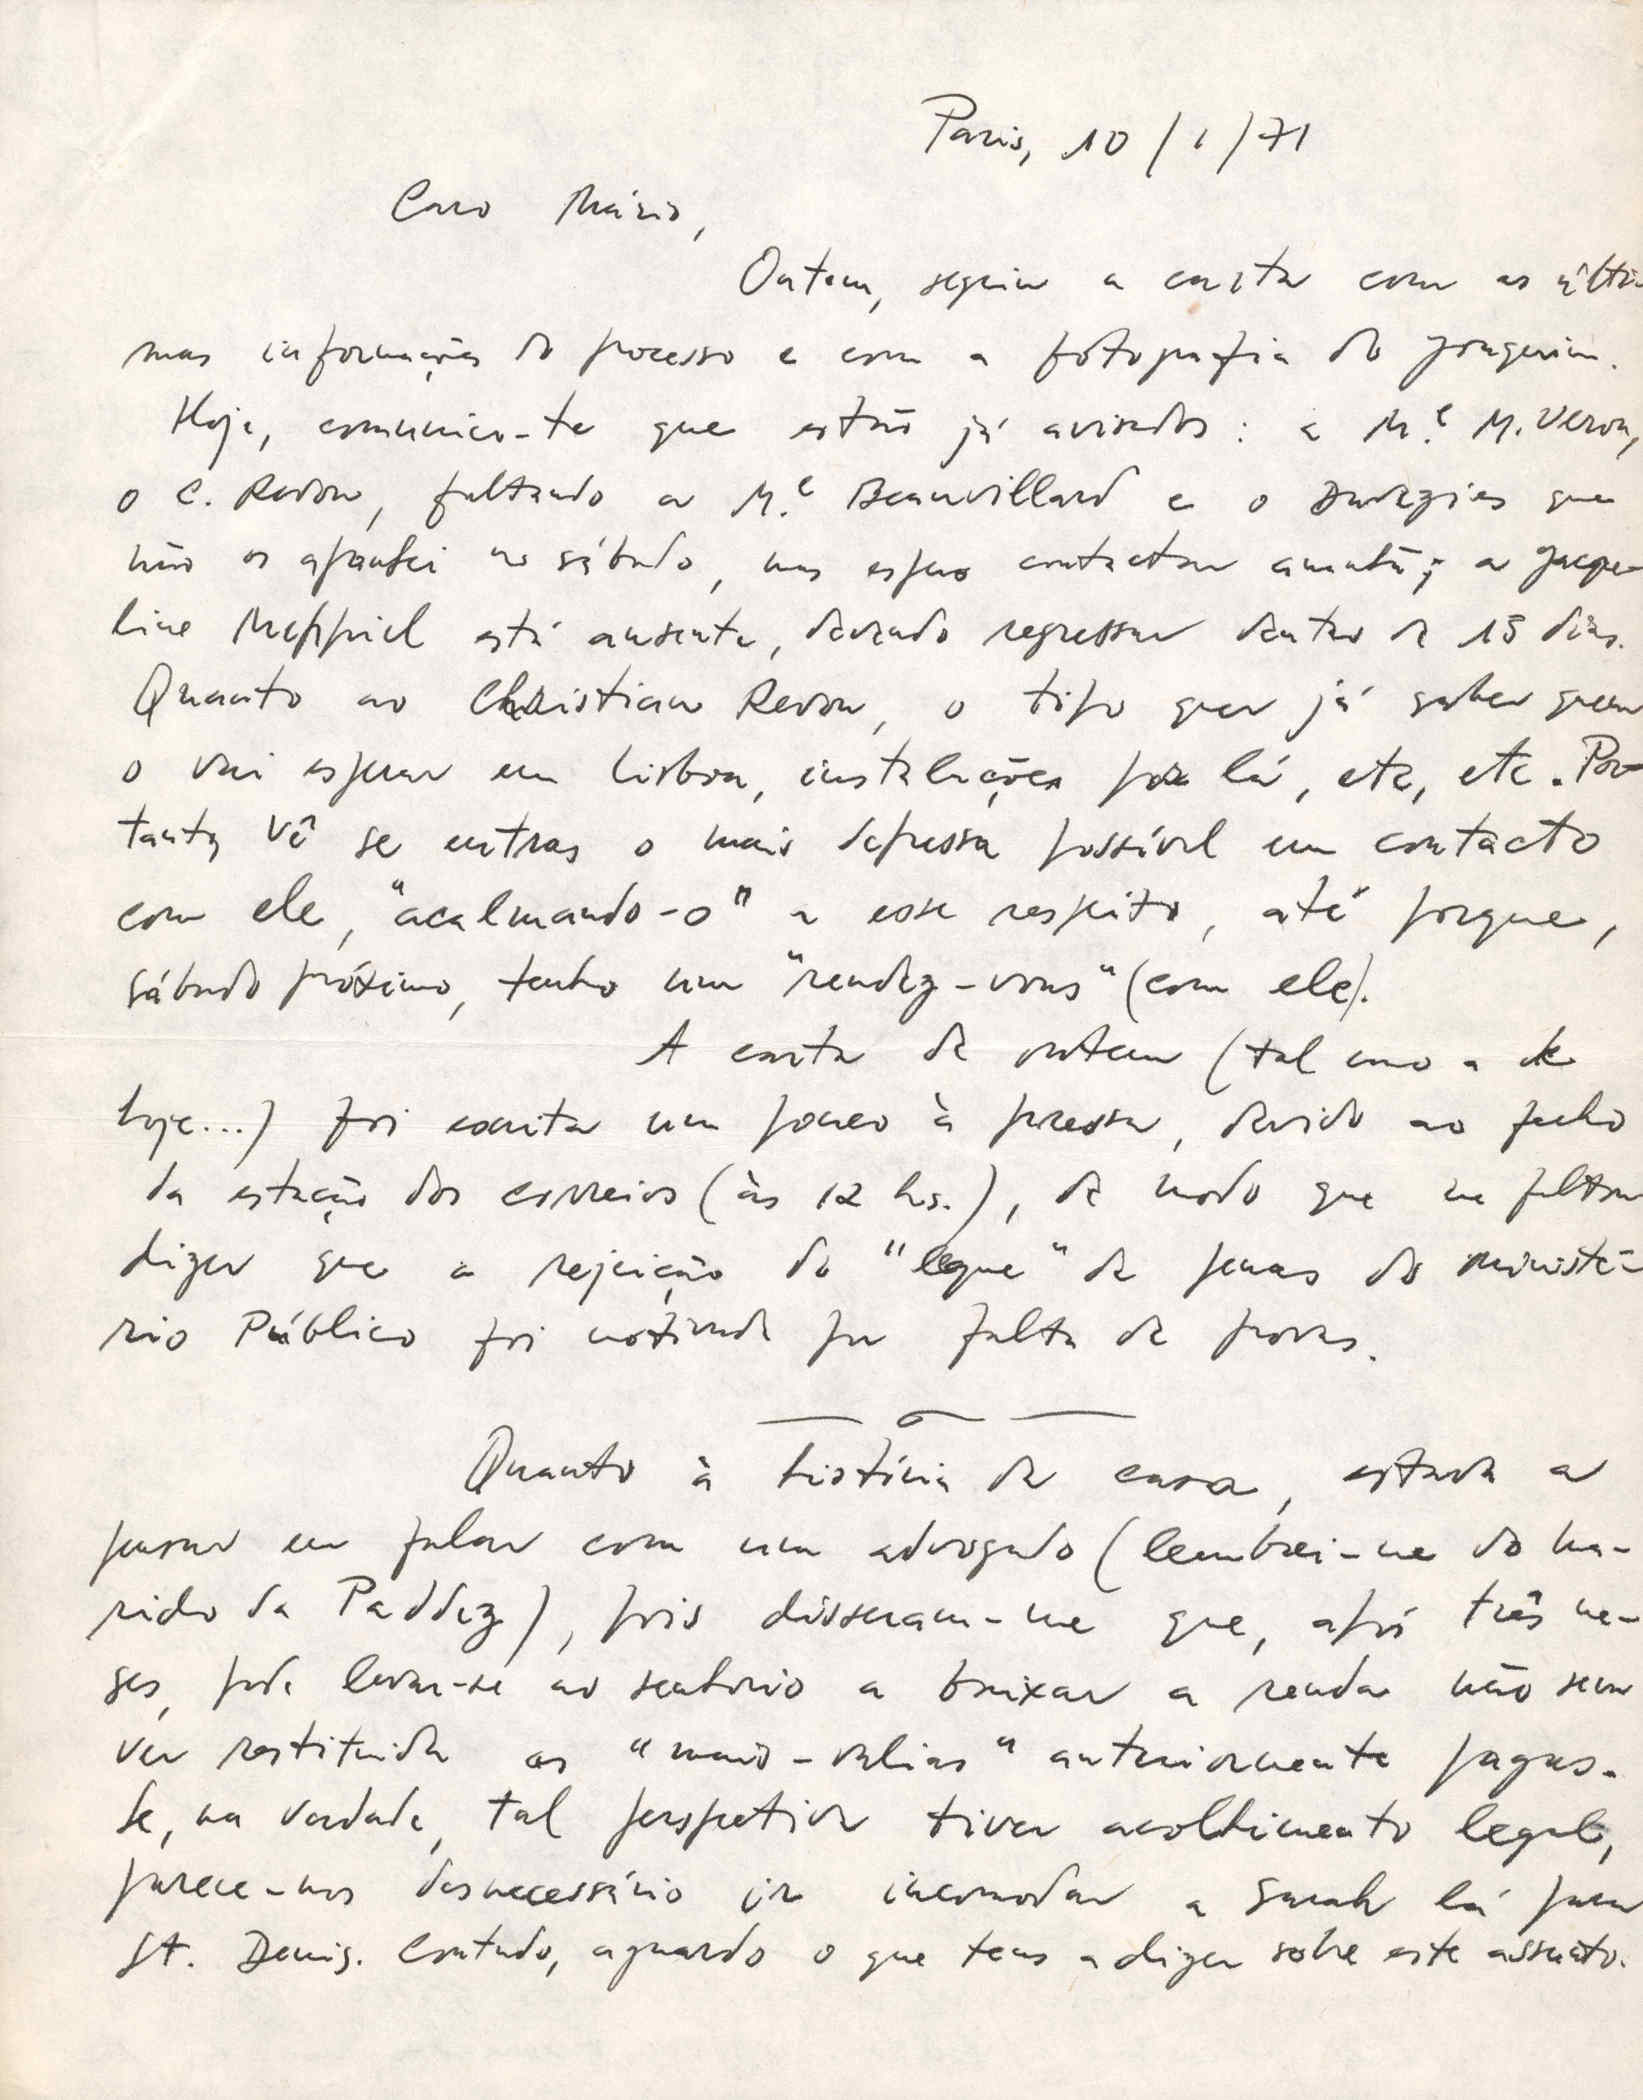 Paris, 10/1/71
Caro Mário,
Ontem, seguiu a carta com as últi-
mas informações do processo e com a fotografia do Joaquim.
Hoje, comunico-te que estão já avisados: a M.e M. Veron,
o C. Redon, faltando a M.e Beauvillard e o que
não os apanhei no sábado, mas espero contactar amanhã; a Jacque-
line Meppiel está ausente, devendo regressar dentro de 15 dias.
Quanto ao Christian Redon, o tipo quer já saber quem
o vai esperar em Lisboa, instalações por lá, etc, etc. Por-
tanto, vê se entras o mais depressa possível em contacto
com ele, "acalmando-o" a esse respeito, até porque,
sábado próximo, tenho um "rendez-vous" (com ele).
A carta de ontem (tal como a de
hoje...) foi escrita um pouco à pressa, devido ao fecho
da estação dos correios (às 12 hs.), de modo que me faltou
dizer que a rejeição do "leque" de penas do ministé-
rio Público foi motivada por falta de provas.
— o —
Quanto à história da casa, estava a
pensar em falar com um advogado (lembrei-me do ma-
rido da Paddez), pois disseram-me que, após três me-
ses, pode levar-se ao senhorio a baixar a renda não sem
ver restituída as "mais-valias" anteriormente pagas.
Se, na verdade, tal perspetiva tiver acolhimento legal,
parece-nos desnecessário ir incomodar a Sarah lá para
St. Denis. Contudo, aguardo o que tens a dizer sobre este assunto.